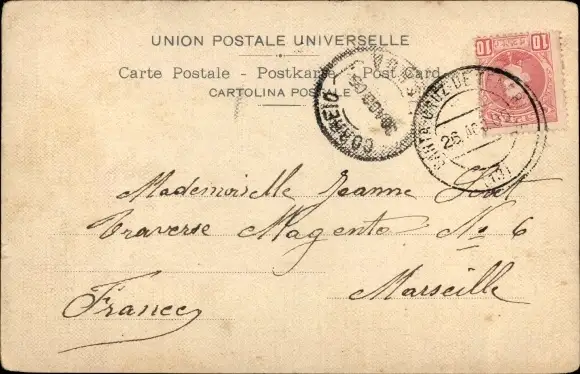 UNION POSTALE UNIVERSELLE
Carte Postale - Postkarte - Post Card
CARTOLINA POSTALE
10 10
CORREIO
SANTA CRUZ DE
26 AGO
Mademoiselle Jeanne
Traverse Magenta No 6
Marseille
France